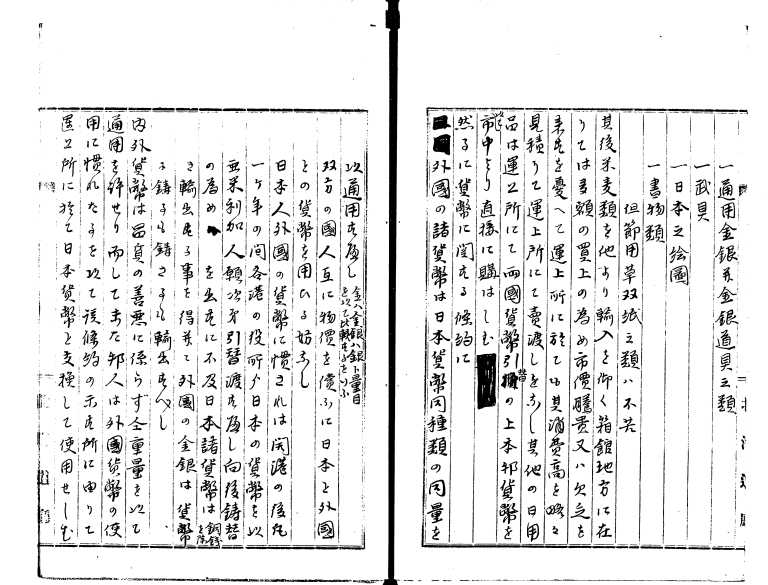 一通用金銀并金銀道具之類
一武具
一日本之絵圖
一書物類
但節用草双紙之類ハ不苦
其後米麦類を他より輸入を仰く箱館地方に在
りては多額の買上の為め市價騰貴又ハ欠乏を
来さんを憂へて運上所に於ても其消費高を略々
見積りて運上所にて賣渡しをなし其他の日用
品は運上所にて両國貨幣引替の上本邦貨幣を
市中より直様に購はしむ
然るに貨幣に関する條約に
外國の諸貨幣は日本貨幣同種類の同量を
以通用すべし 金ハ金銀ハ銀ト量目を以て比較するをいふ
双方の國人互に物價を償ふに日本と外國
との貨幣を用ひる妨なし
日本人外國の貨幣に慣されは開港の後凡
一ケ年の間各港の役所より日本の貨幣を以
亜米利加人願次第引替渡すへし向後鋳替
の為め を出すに不及日本諸貨幣は 銅銭を除く
輸出する事を得并て外國の金銀は貨幣
に鋳るも鋳さるも輸出すへし
内外貨幣は品質の善悪に係らす全重量を以て
通用を許せり而して未た邦人は外國貨幣の使
用に慣れたるを以て該條約の示す所に由りて
運上所に於て日本貨幣と交換して使用せしむ